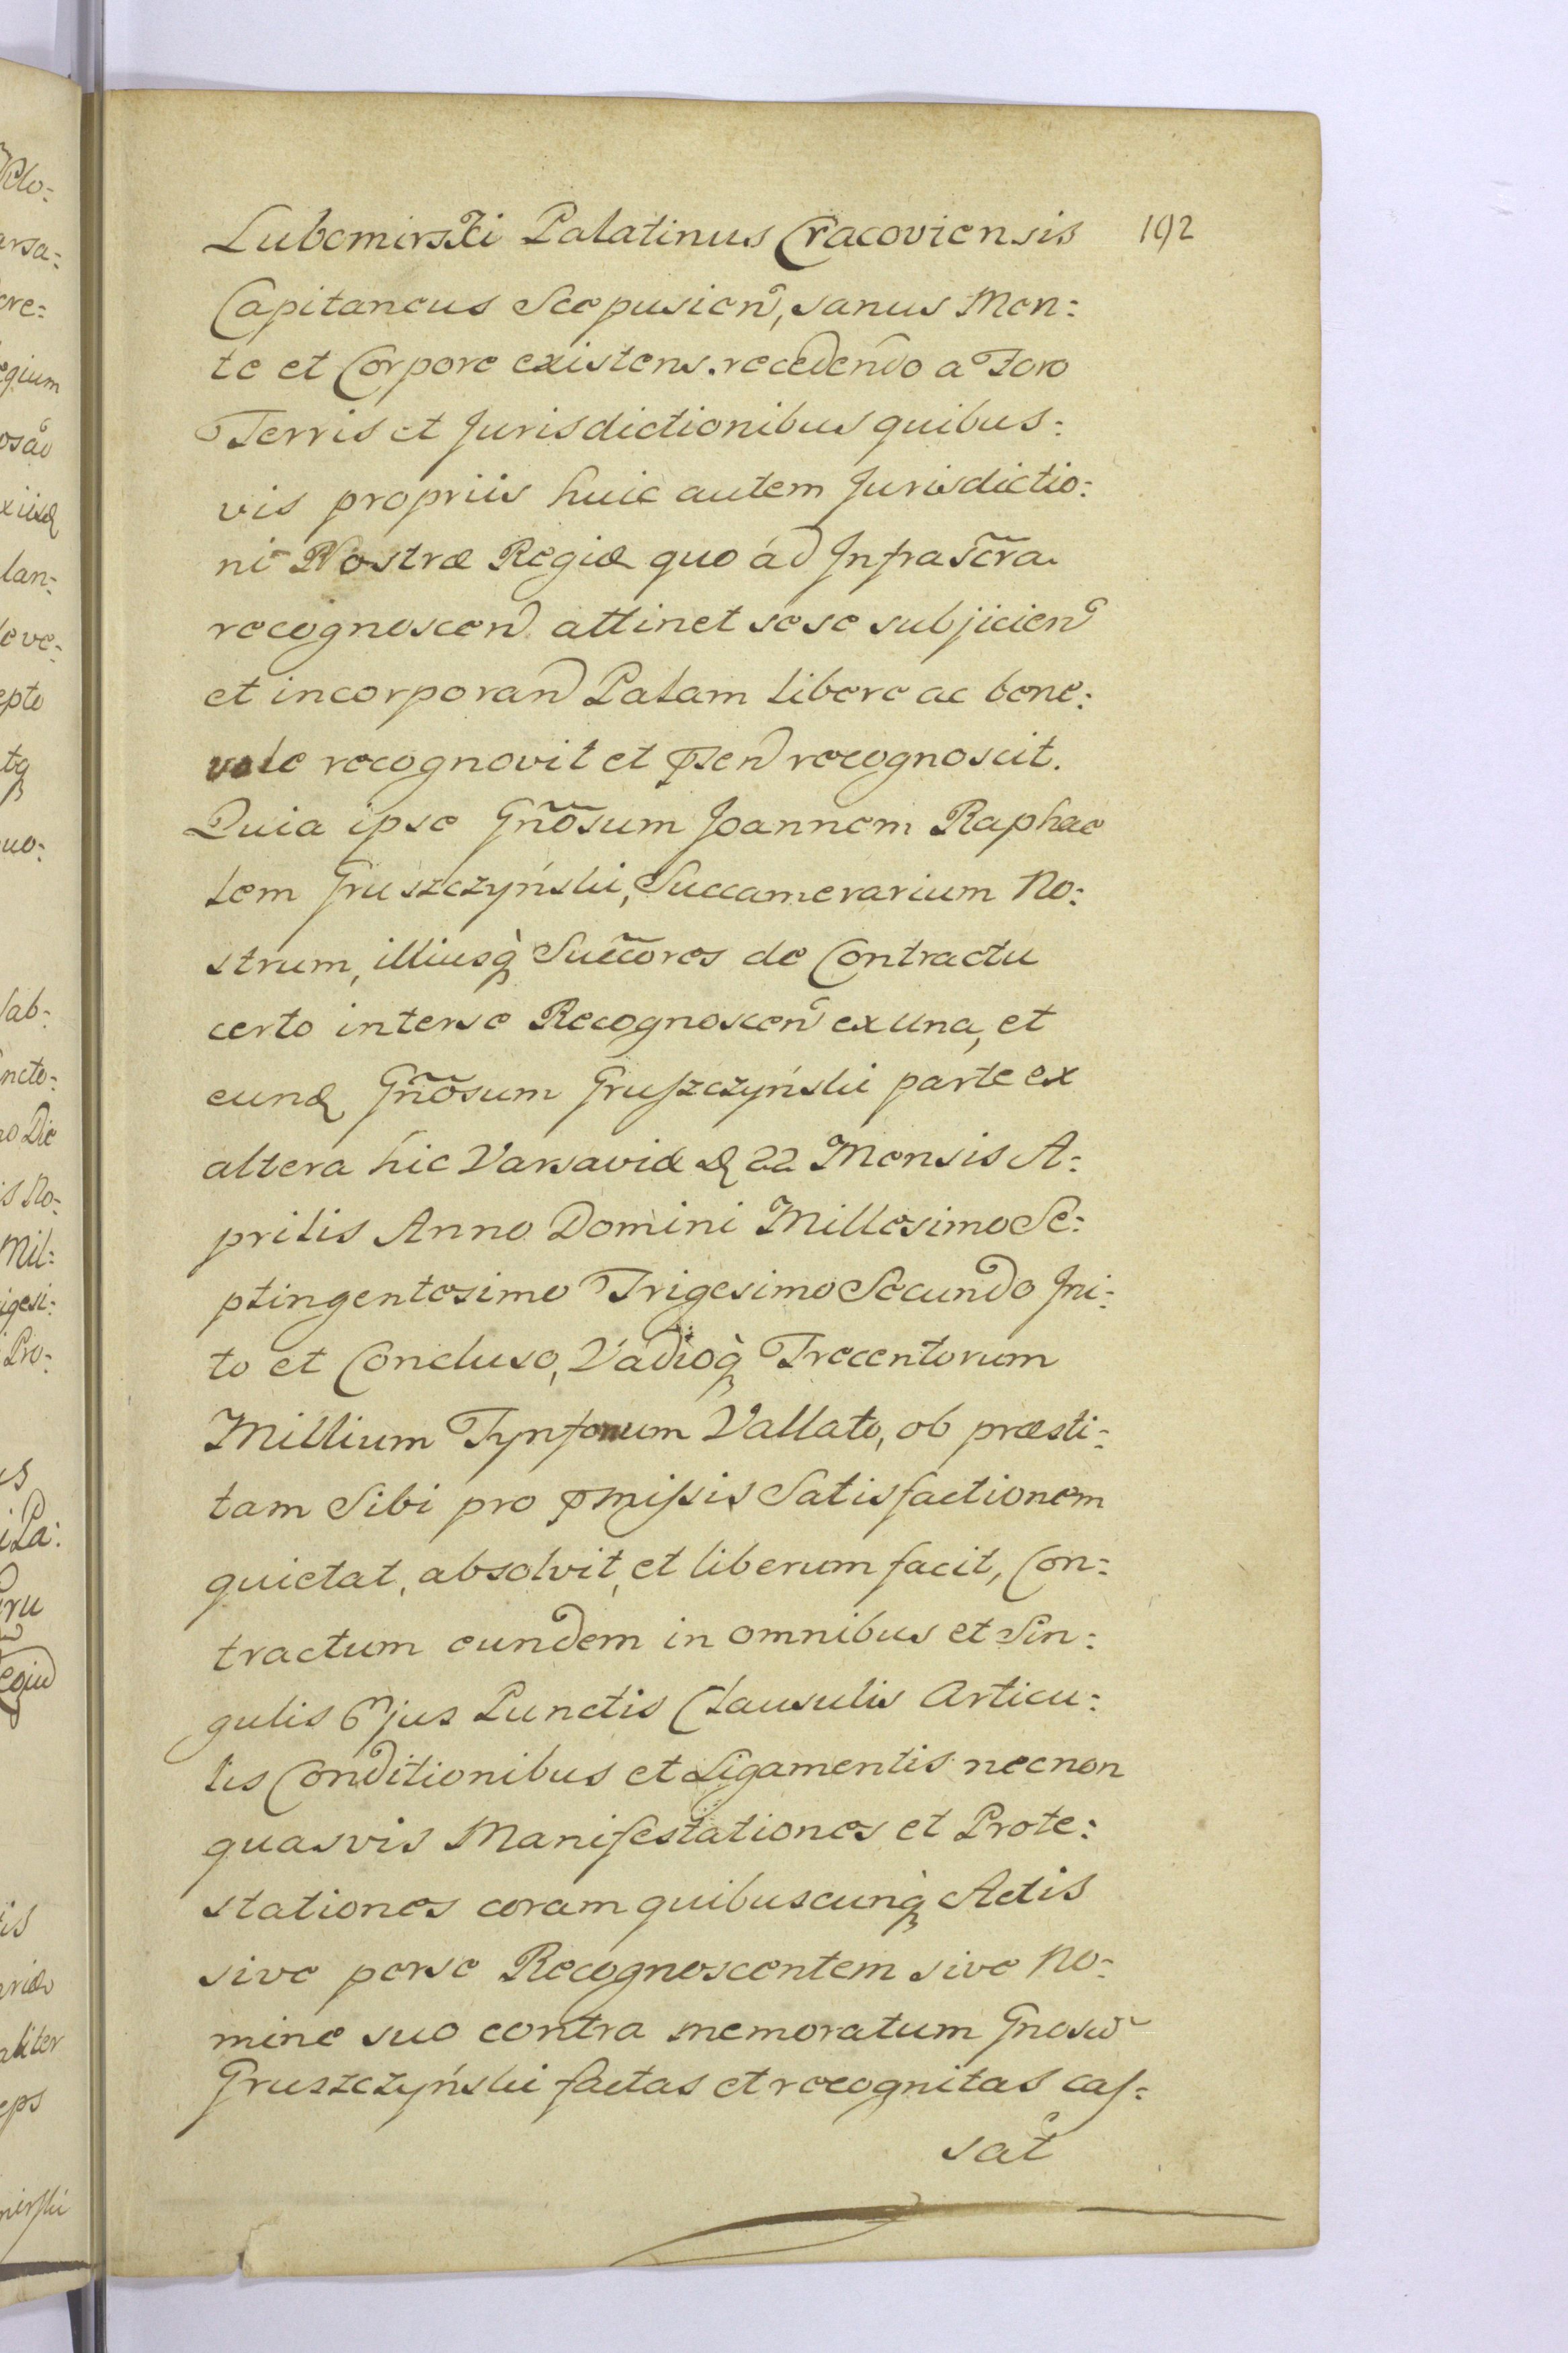 Lubomirski Palatinus Cracoviensis 192
Capitaneus Scepusien, sanus Men:
te et Corpore existens. recedendo a Foro
Terris et Jurisdictionibus quibus:
vis propriis huic autem Jurisdictio:
ni Nostræ Regiæ quo ád Infrascr̃a.
recognoscen attinet sese subjicien
et incorporan Palam libere ac bene:
vole recognovit et pñsen recognoscit.
Quia ipse Gñõsum Joannem Raphae
lem Gruszczyński, Succamerarium No:
strum, illiusq̀ Succ̃ores de Contractu
certo inter se Recognoscen ex una, et
eund Gñõsum Gruszczyński parte ex
altera hic Varsaviæ d 22 Mensis A:
prilis Anno Domini Millesimo Se:
ptingentesimo Trigesimo Secundo Ini:
to et Concluso, Vadioq̀ Trecentorum
Millium Tynforum Vallato, ob præsti:
tam Sibi pro pmissis Satisfactionem
quietat, absolvit, et liberum facit, Con:
tractum eundem in omnibus et Sin:
gulis Ejus Punctis Clausulis Articu:
lis Conditionibus et Ligamentis necnon
quasvis Manifestationes et Prote:
stationes coram quibuscunq̀ Actis
sive per se Recognoscentem sive No:
mine suo contra memoratum Gnosũ
Gruszczyński factas et recognitas cas:
sat